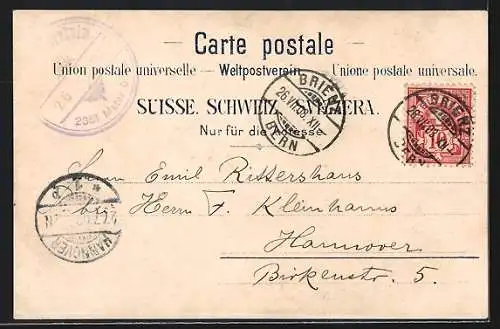 Carte postale
Union postale universelle – Weltpostverein – Unione postale universale.
SUISSE. SCHWEIZ. SVIZZERA.
Nur für die Adresse
BRIENZ
26.VII.06.XII
BERN
BRIENZ
10
Herrn Emil Rittershaus
bei Herrn F. Kleinhanns
Hannover
Birkenstr. 5.
HANNOVER